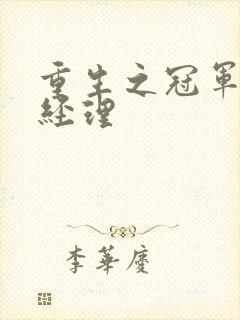 重生之冠軍
經理
李華慶